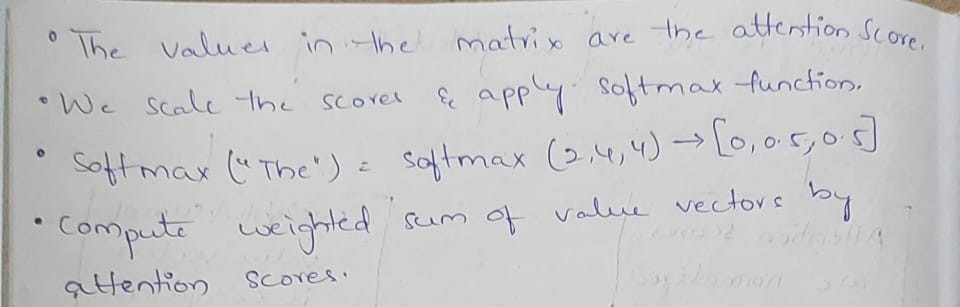 • The values in the matrix are the attention Score.
• We scale the scores & apply softmax function.
• Softmax ("The") = softmax (2,4,4) → [0, 0.5, 0.5]
• Compute weighted sum of value vectors by
attention scores.